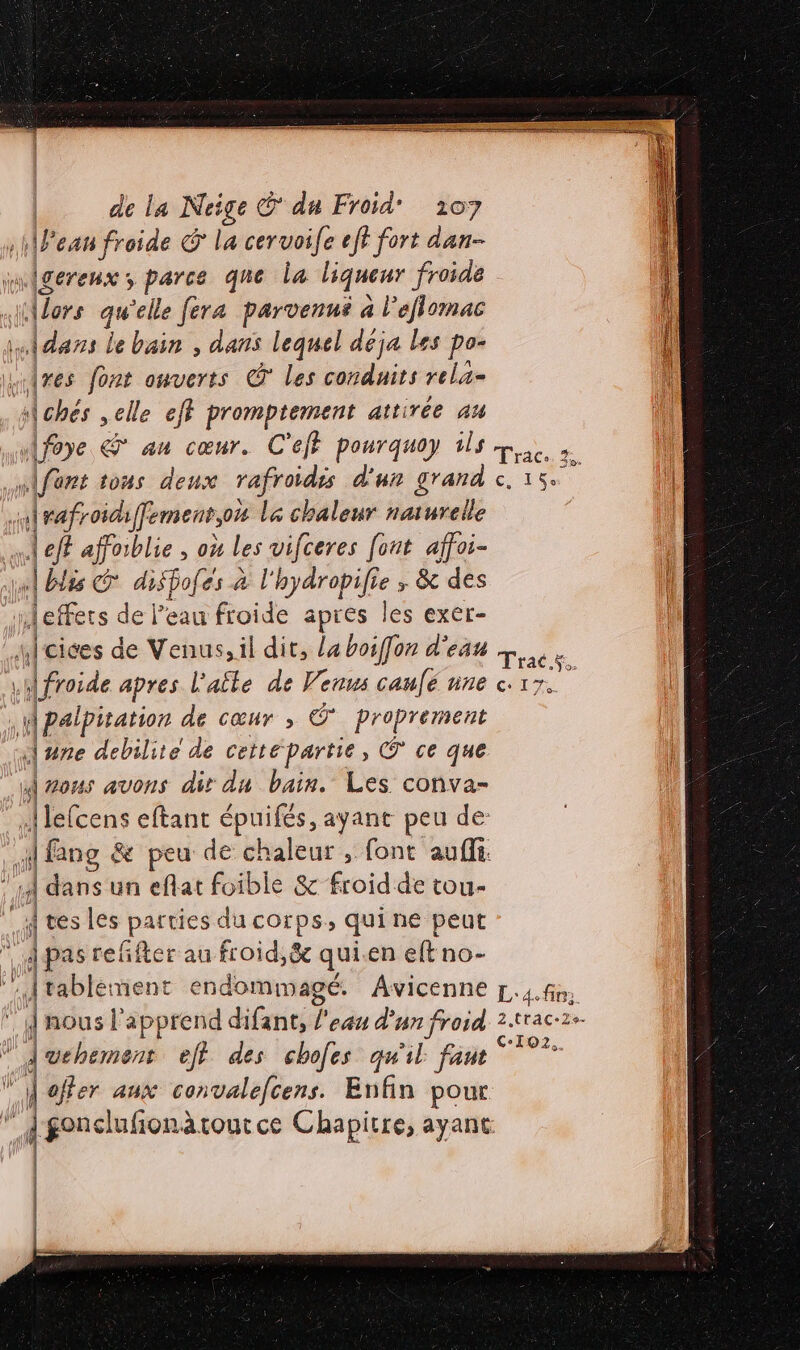 de la Neige & du Froid· 207
l'eau froide & la cervoiſe eſt fort dan-
gereux ; parce que la liqueur froide
lors qu'elle ſera parvenuë à l'eſtomac
dans le bain , dans lequel déja les po-
res ſont ouverts & les conduits rela-
chés , elle eſt promptement attirée au
foye & au cœur. C'eſt pourquoy ils
ſont tous deux rafroidis d'un grand
rafroidiſſement, où la chaleur naturelle
eſt affoiblie , où les viſceres ſont affoi-
blis & diſpoſés à l'hydropiſie ; & des
effets de l'eau froide apres les exer-
cices de Venus, il dit, la boiſſon d'eau
froide apres l'acte de Venus cauſe une
palpitation de cœur , & proprement
une debilité de cette partie , & ce que
nous avons dit du bain. Les conva-
leſcens eſtant épuiſés, ayant peu de
ſang & peu de chaleur , ſont auſſi
dans un eſtat foible & froid de tou-
tes les parties du corps, qui ne peut
pas reſiſter au froid, & qui en eſt no-
tablement endommagé. Avicenne
nous l'apprend diſant, l'eau d'un froid
vehement eſt des choſes qu'il faut
oſter aux convaleſcens. Enfin pour
concluſion à tout ce Chapitre, ayant
Trac. 2.
c. 15.
Trac. 5.
c. 17.
L. 4. fin.
2. trac. 2.
c. 102.